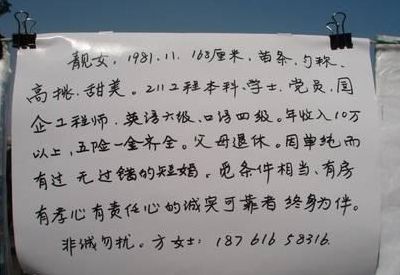 靓女，1981.11. 168厘米，苗条、匀称、
高挑、甜美。211工程本科、学士、党员、国
企工程师、英语六级、口语四级。年收入10万
以上，五险一金齐全。父母退休。因单纯而
有过无过错的短婚。觅条件相当、有房
有孝心有责任心的诚实可靠者 终身为伴。
非诚勿扰。方女士：187 616 58316